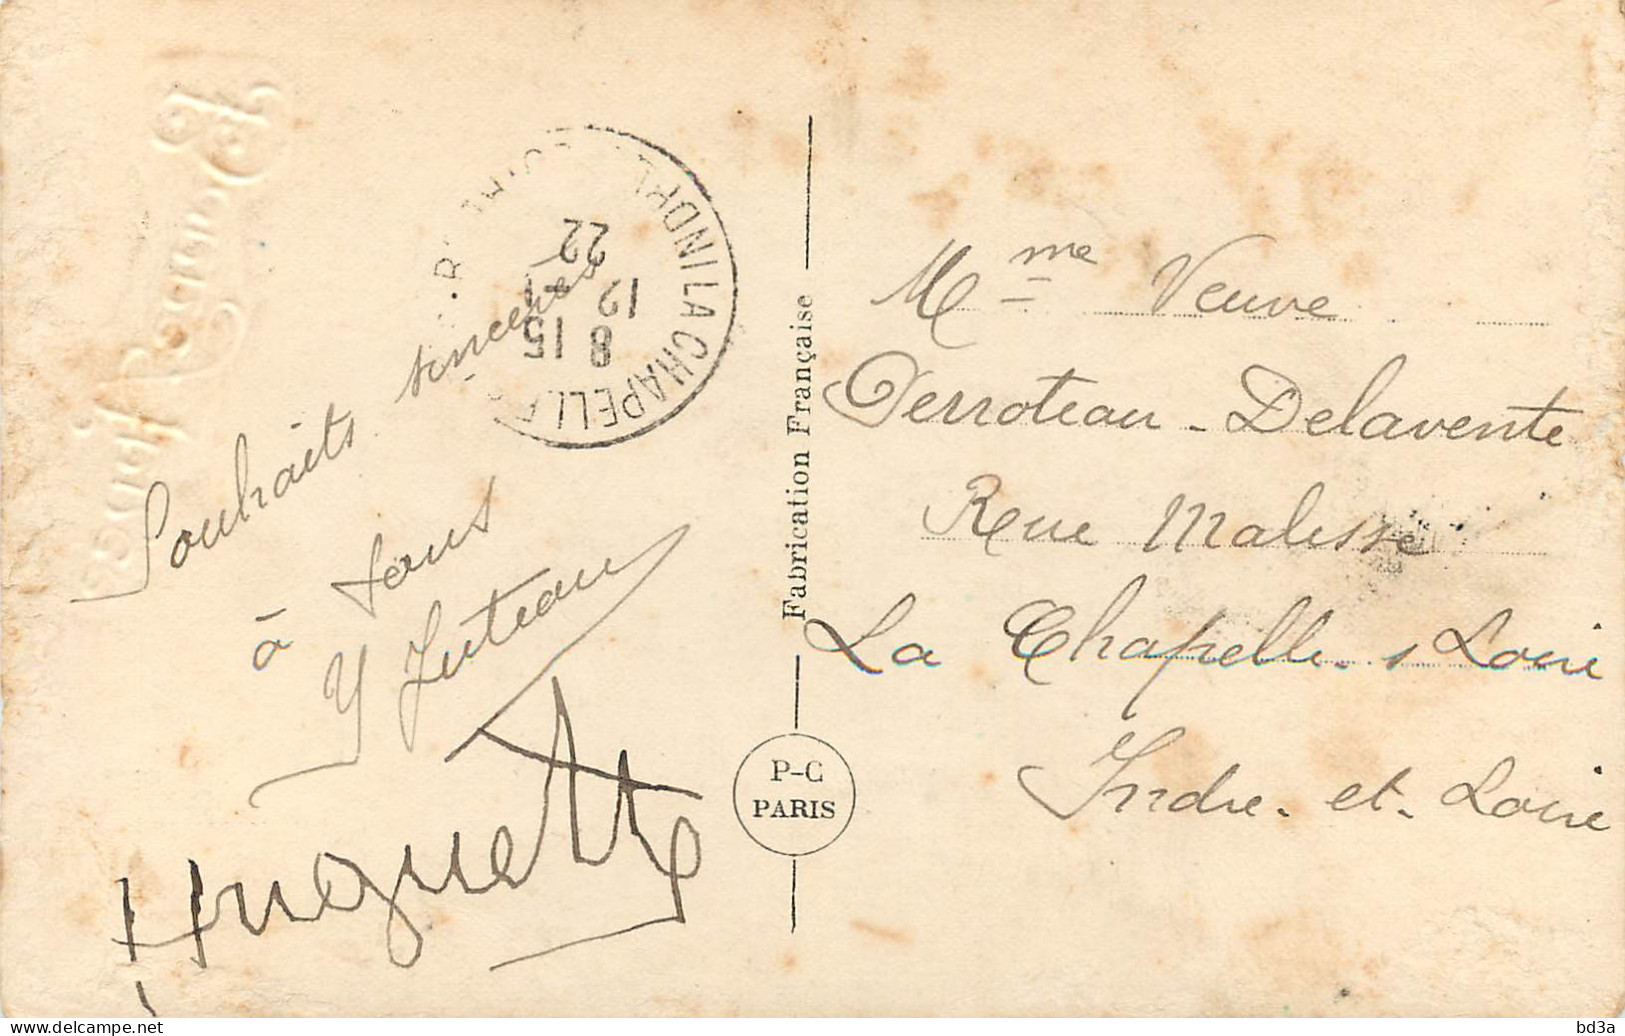 Souhaits sincères
à tous
Y Juteau
Huguette
8 15
12
22
LA CHAPELLE
Fabrication Française
P-C
PARIS
Mme Veuve
Derroteau - Delavente
Rue Malesse
La Chapelle. s Loire
Indre. et. Loire
delcampe.net
bd3a